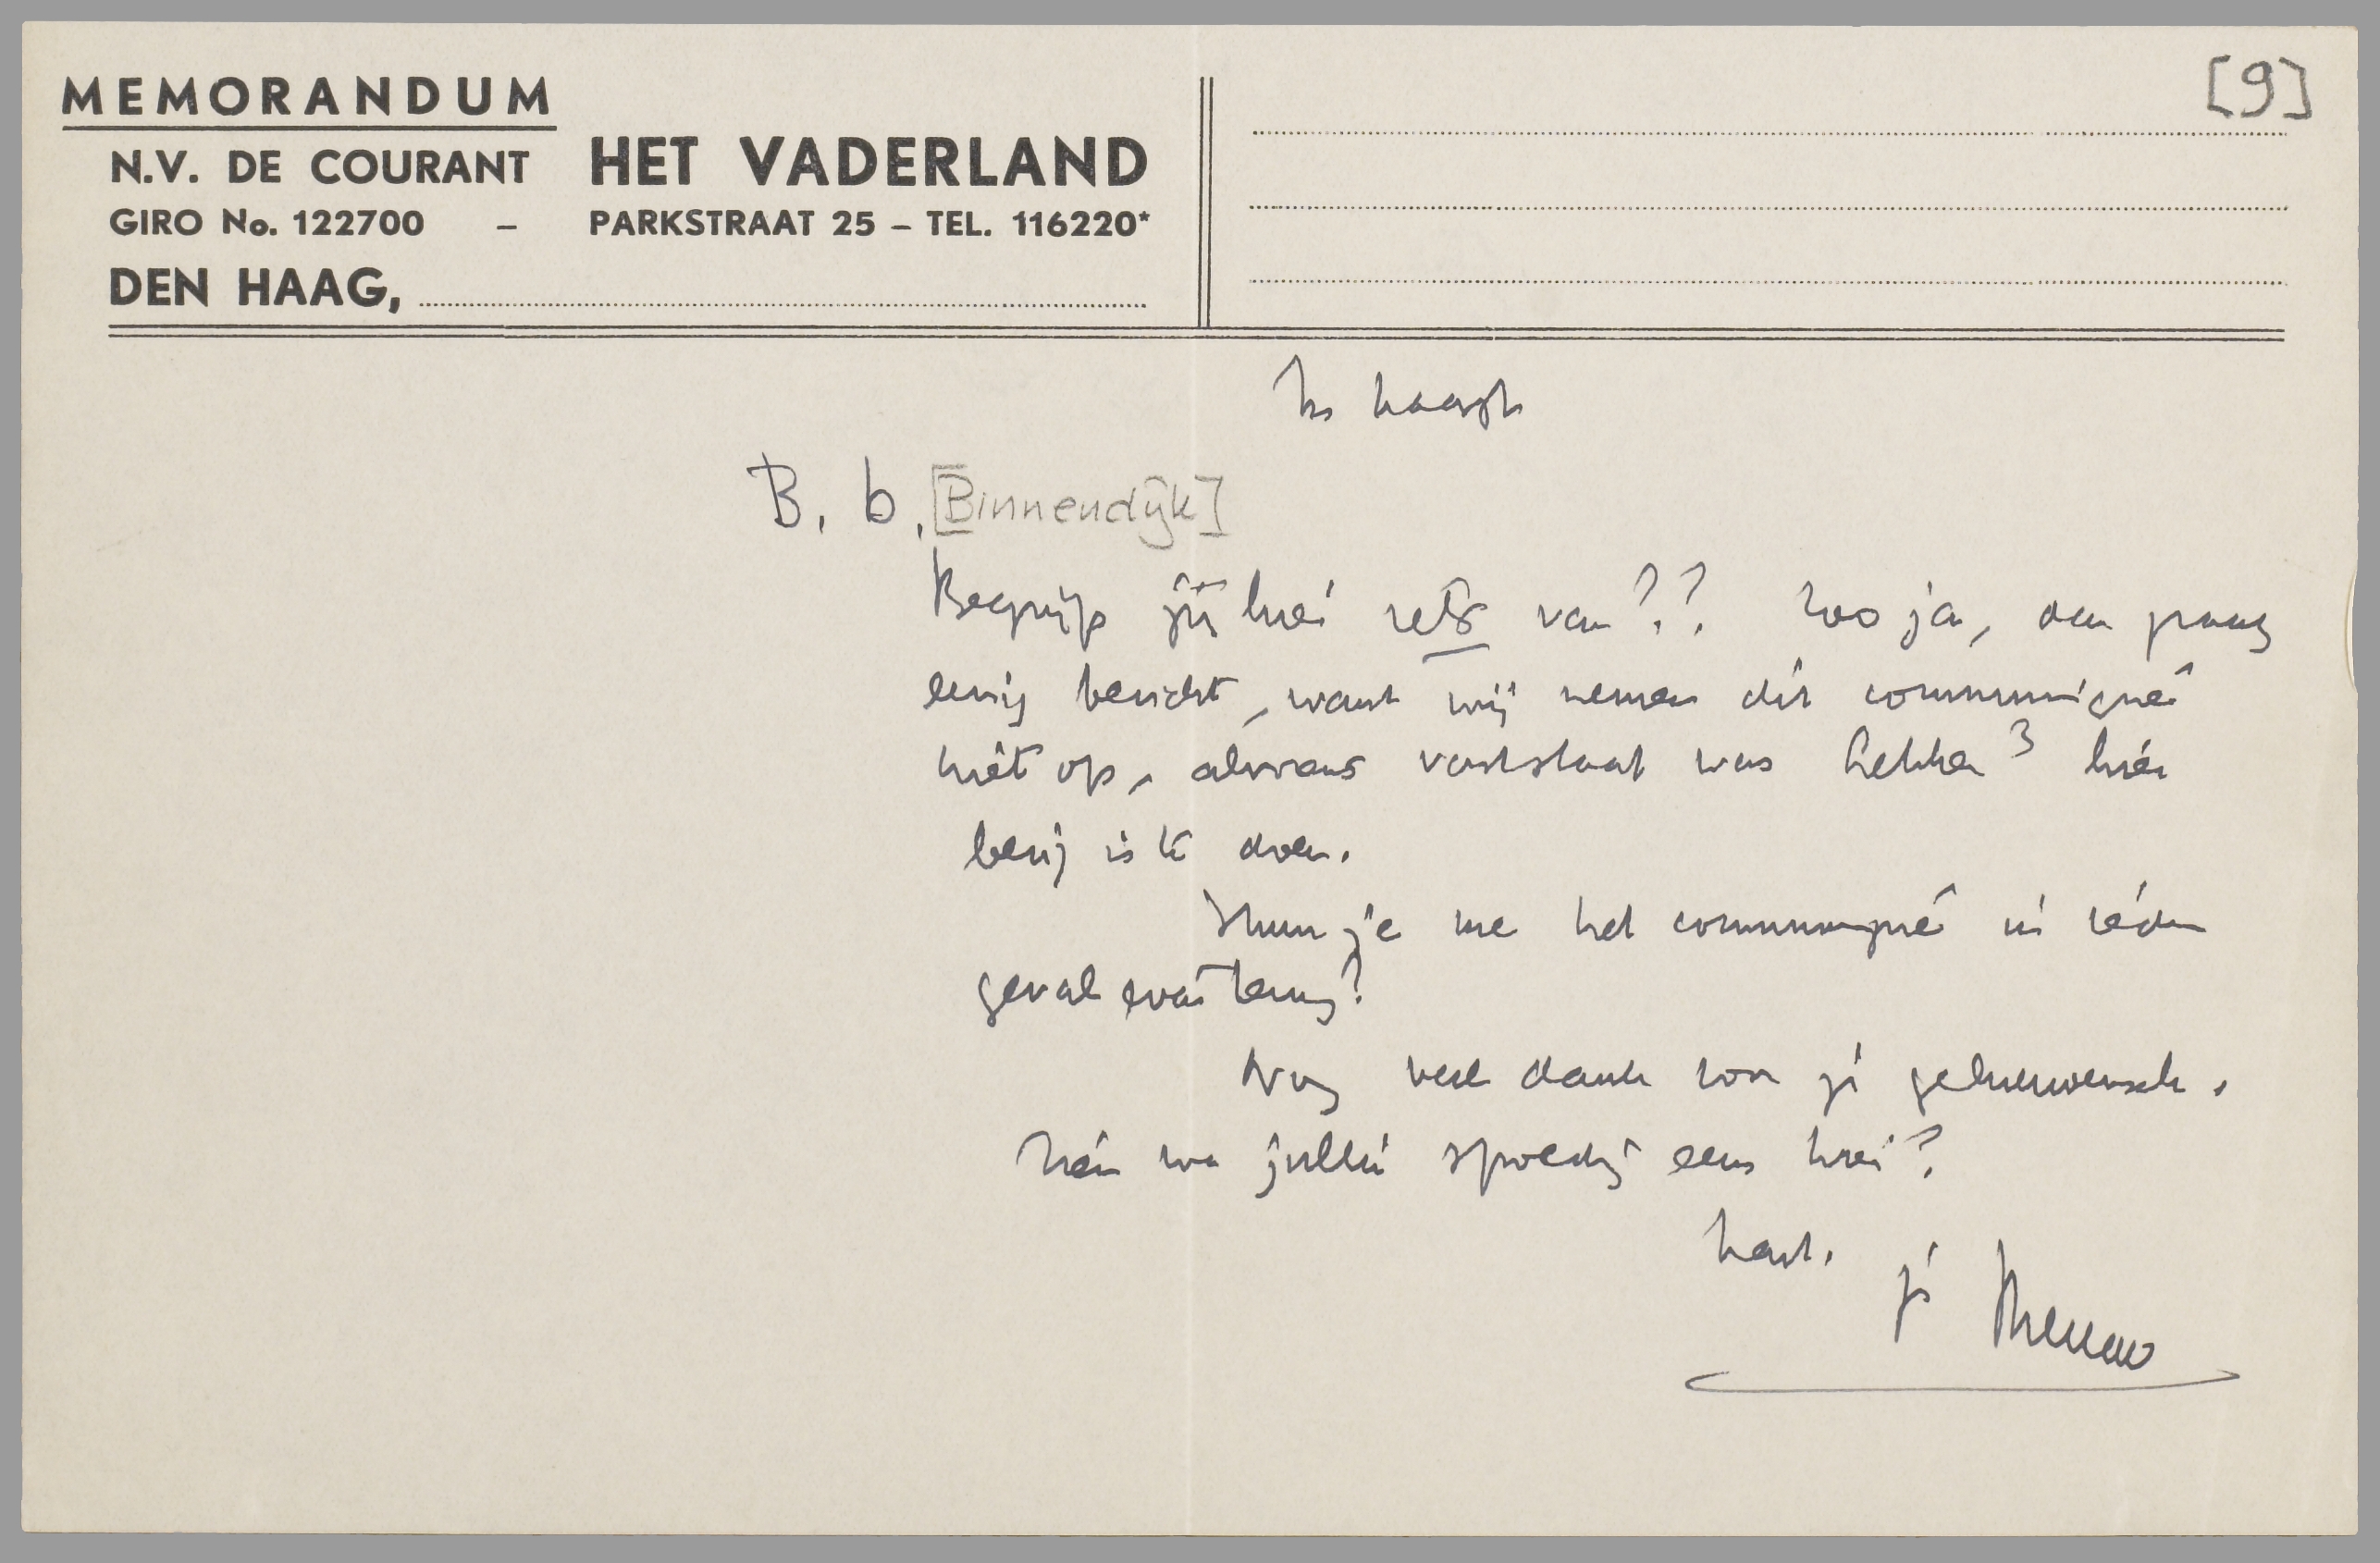 [9]
MEMORANDUM
N.V. DE COURANT HET VADERLAND
GIRO No. 122700 – PARKSTRAAT 25 – TEL. 116220*
DEN HAAG,
In haast
B. b, [Binnendijk]
Begrijp jij hier iets van?? Zoo ja, dan graag
eenig bericht, want wij nemen dit communiqué
niet op, alvorens vaststaat was hier
bezig is te doen.
Stuur je me het communiqué in ieder
geval even terug?
Nog veel dank voor je gelukwensch.
Zien we jullie spoedig eens hier?
hart. je Menno